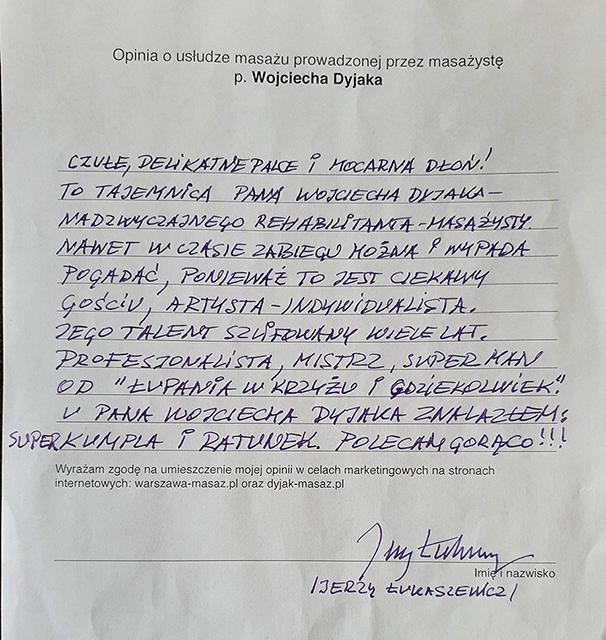 Opinia o usłudze masażu prowadzonej przez masażystę
p. Wojciecha Dyjaka
CZUŁE, DELIKATNE PALCE I MOCARNA DŁOŃ!
TO TAJEMNICA PANA WOJCIECHA DYJAKA –
NADZWYCZAJNEGO REHABILITANTA-MASAŻYSTY.
NAWET W CZASIE ZABIEGU MOŻNA I WYPADA
POGADAĆ, PONIEWAŻ TO JEST CIEKAWY
GOŚCIU, ARTYSTA-INDYWIDUALISTA.
JEGO TALENT SZLIFOWANY WIELE LAT.
PROFESJONALISTA, MISTRZ, SUPER MAN
OD "ŁUPANIA W KRZYŻU I GDZIEKOLWIEK".
U PANA WOJCIECHA DYJAKA ZNALAZŁEM:
SUPERKUMPLA I RATUNEK. POLECAM GORĄCO!!!
Wyrażam zgodę na umieszczenie mojej opinii w celach marketingowych na stronach
internetowych: warszawa-masaz.pl oraz dyjak-masaz.pl
Imię i nazwisko
/JERZY ŁUKASZEWICZ/